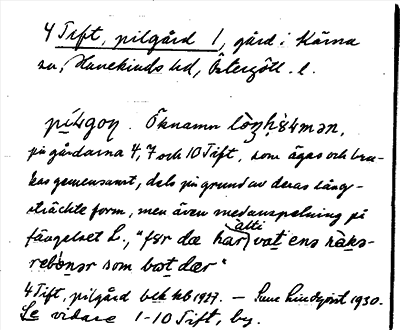 4 Tift, pilgård 1, gård i Kärna
sn, Hanekinds hd, Östergötl. l.
Öknamn
på gårdarna 4, 7 och 10 Tift, som ägas och bru-
kas gemensamt, dels på grund av deras lång-
sträckta form, men även med anspelning på
fängelset L., "før dæ har alti vat ens
som bot dær"
4 Tift, pilgård bek kb 1927. — Sune Lindqvist 1930.
Se vidare 1-10 Tift, by.